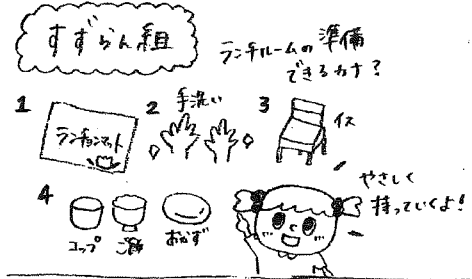 すずらん組
ランチルームの準備
できるカナ?
1
ランチョンマット
2 手洗い
3
イス
4
コップ
ご飯
おかず
やさしく
持っていくよ!